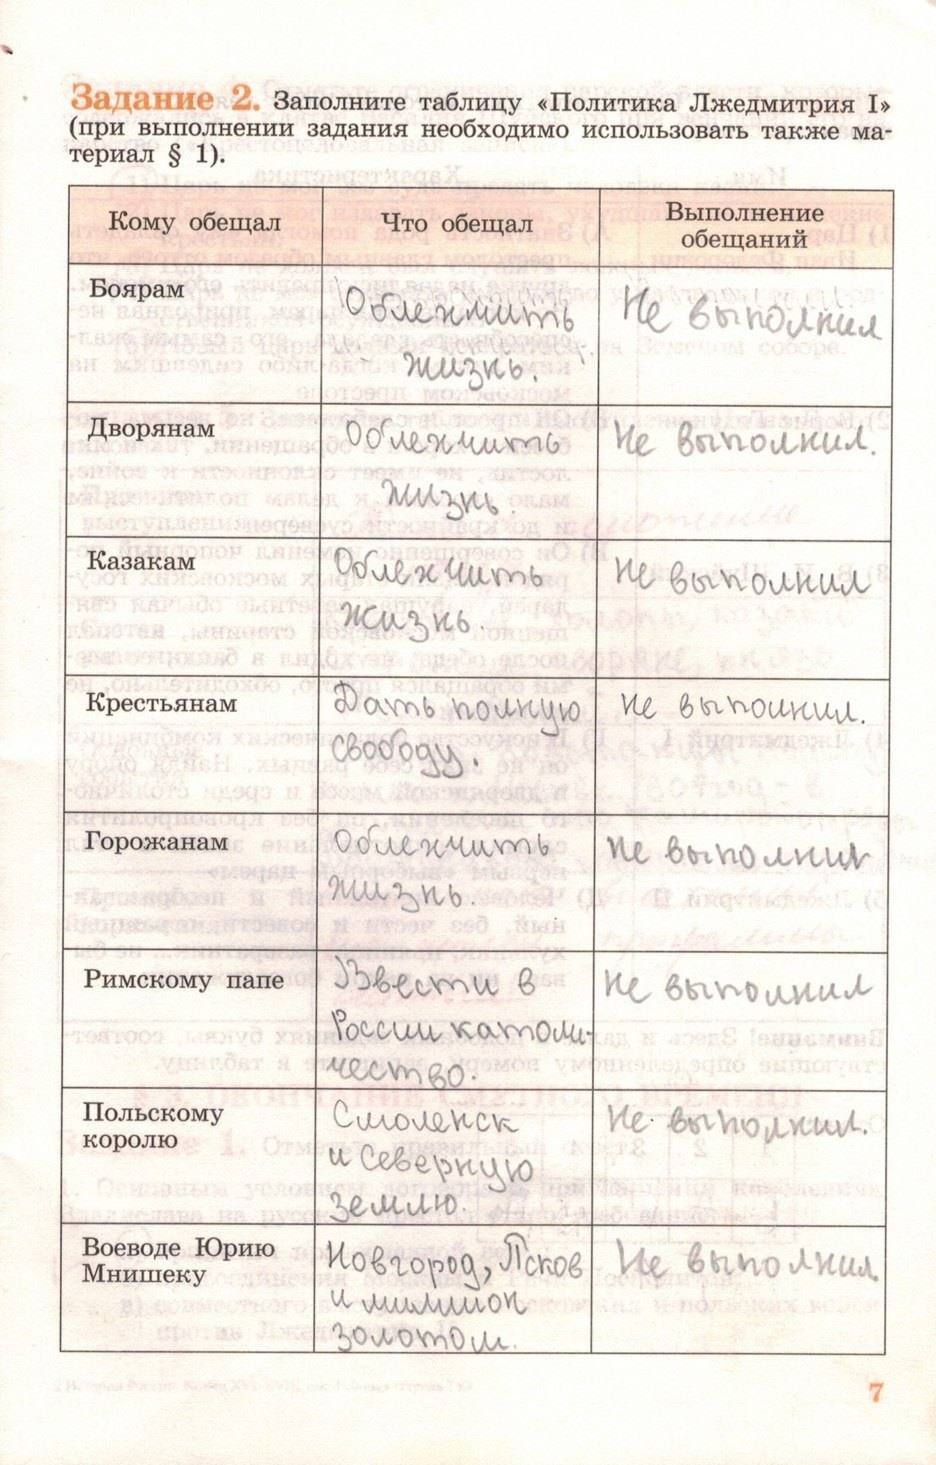 Задание 2. Заполните таблицу «Политика Лжедмитрия I»
(при выполнении задания необходимо использовать также ма-
териал § 1).
Кому обещал
Что обещал
Выполнение
обещаний
Боярам
Облегчить
жизнь.
Не выполнил
Дворянам
Облегчить
жизнь.
Не выполнил.
Казакам
Облегчить
жизнь.
Не выполнил
Крестьянам
Дать полную
свободу.
Не выполнил.
Горожанам
Облегчить
жизнь.
Не выполнил
Римскому папе
Ввести в
России католи-
чество.
Не выполнил
Польскому
королю
Смоленск
и Северную
землю.
Не выполнил.
Воеводе Юрию
Мнишеку
Новгород, Псков
и миллион
золотом.
Не выполнил.
7